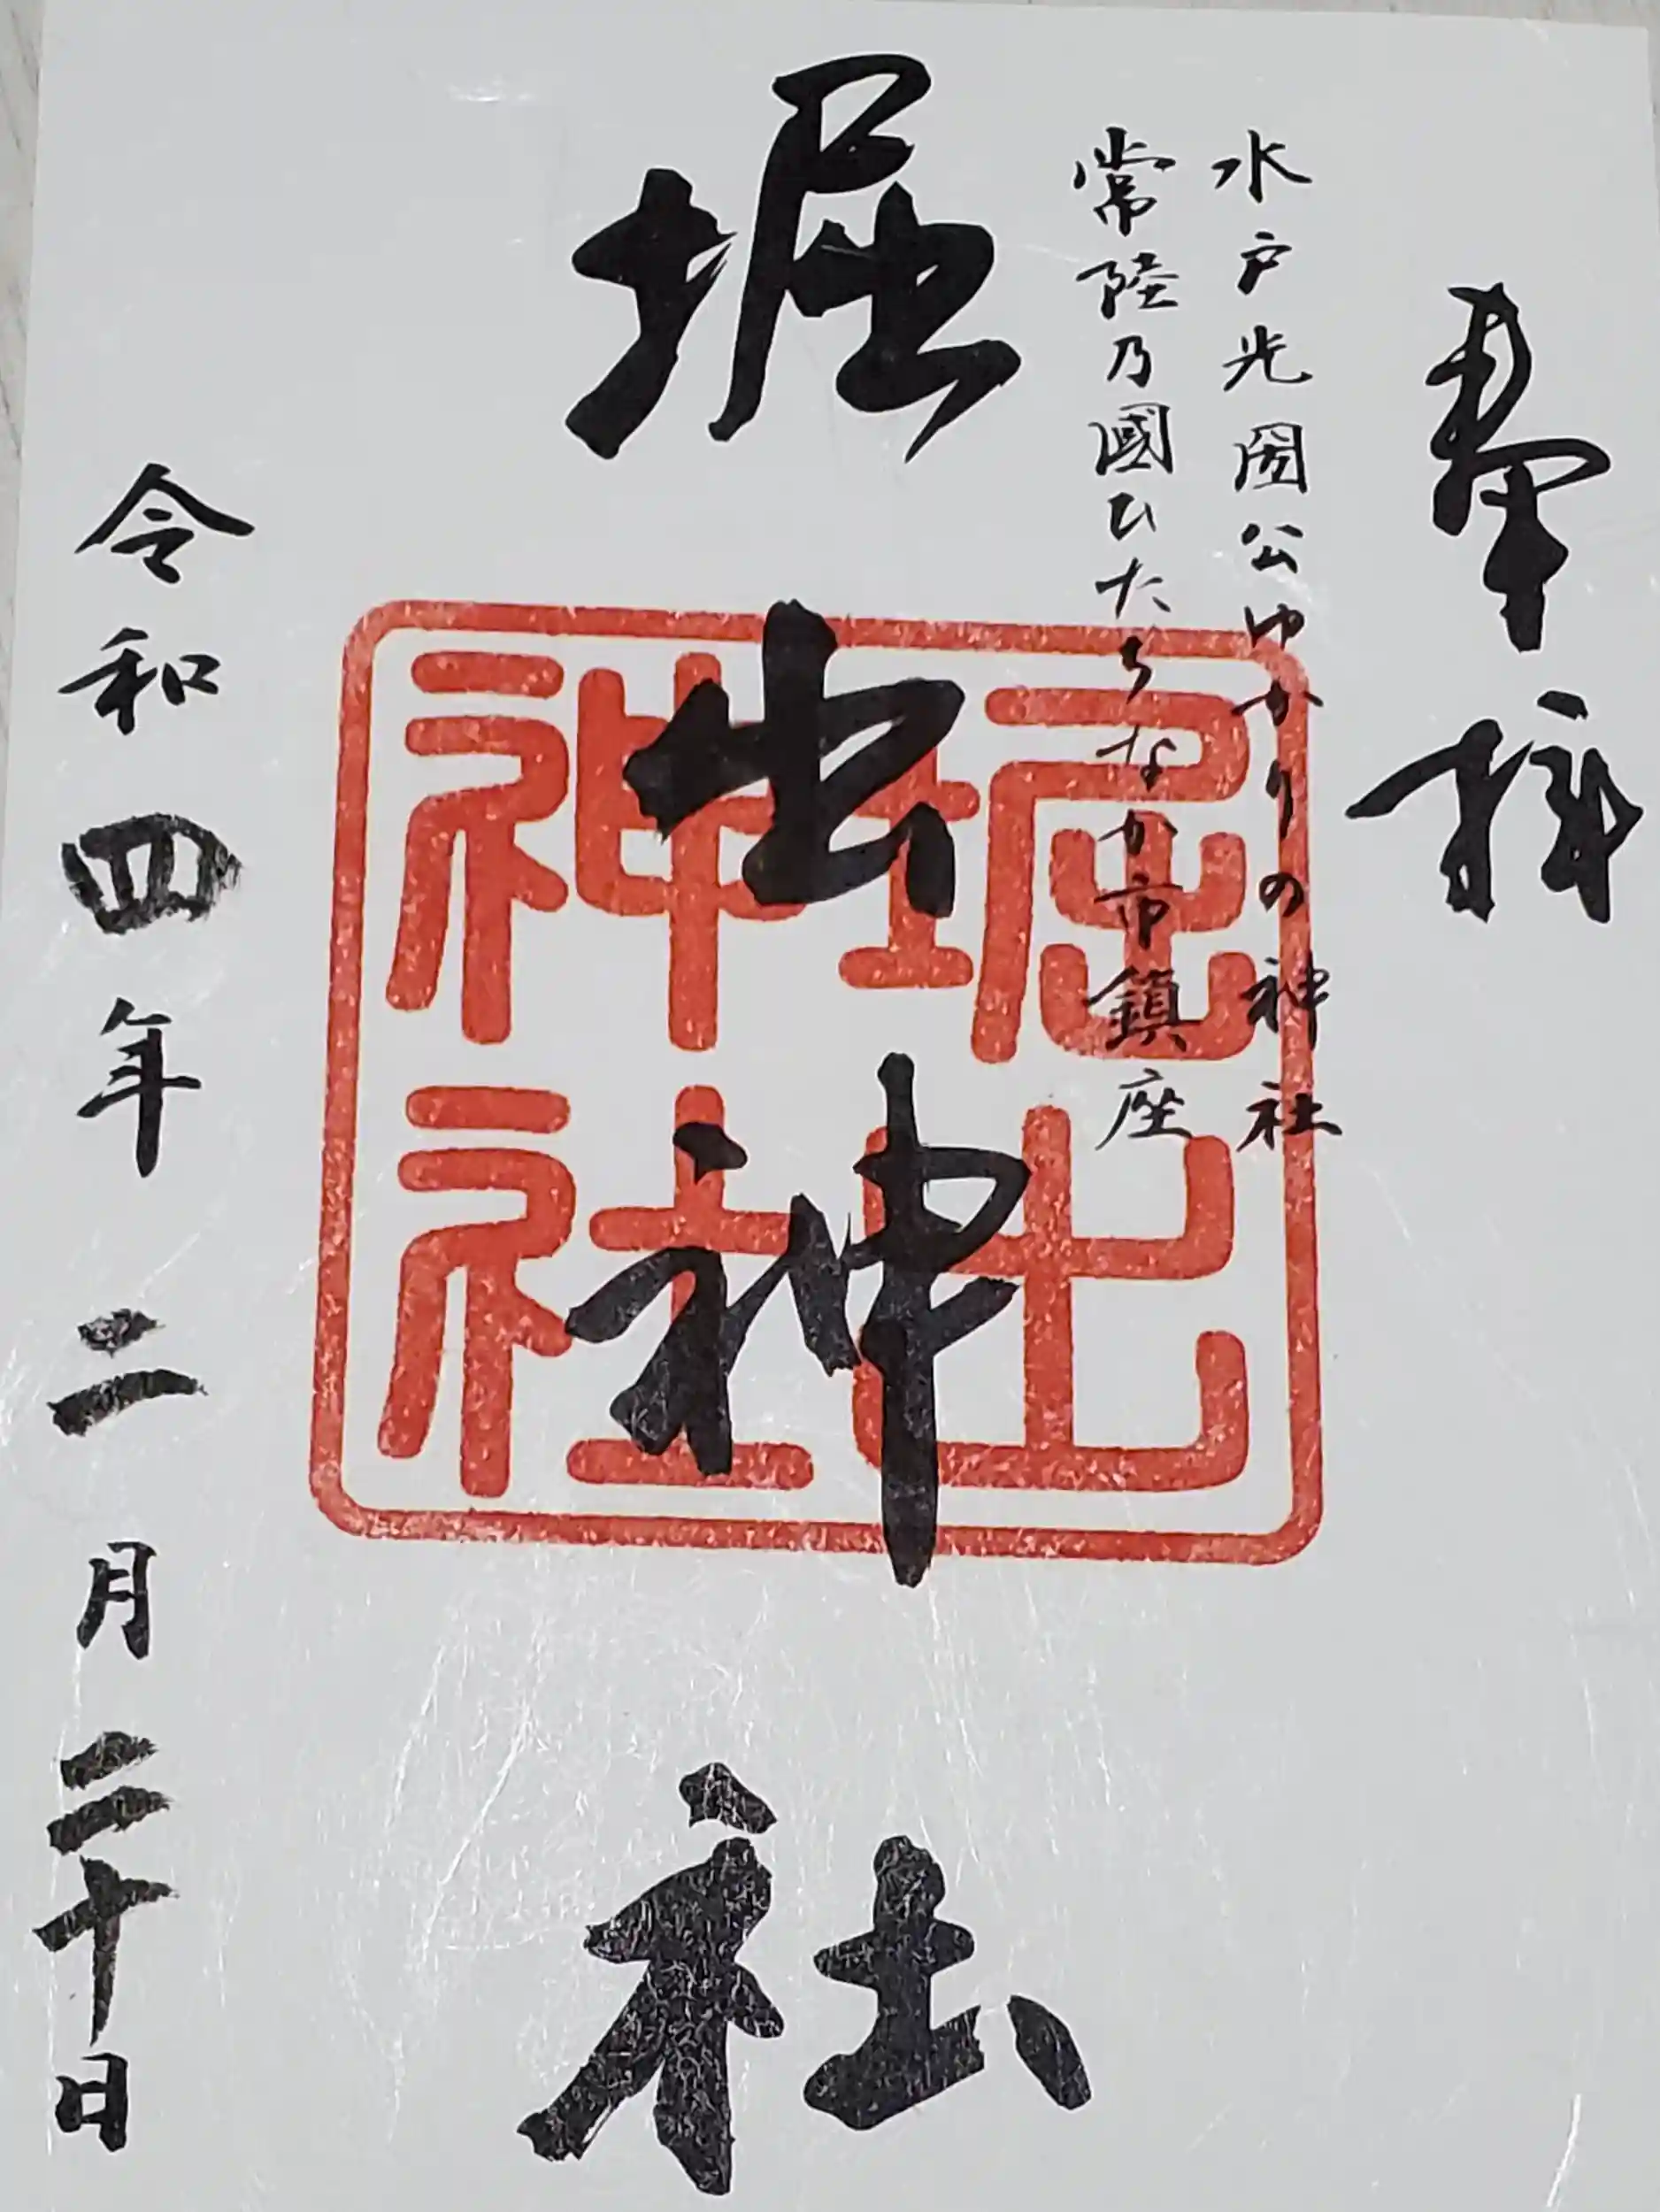 奉拝
水戸光圀公ゆかりの神社
常陸乃國ひたちなか市鎮座
堀出神社
堀出神社
令和四年二月二十日